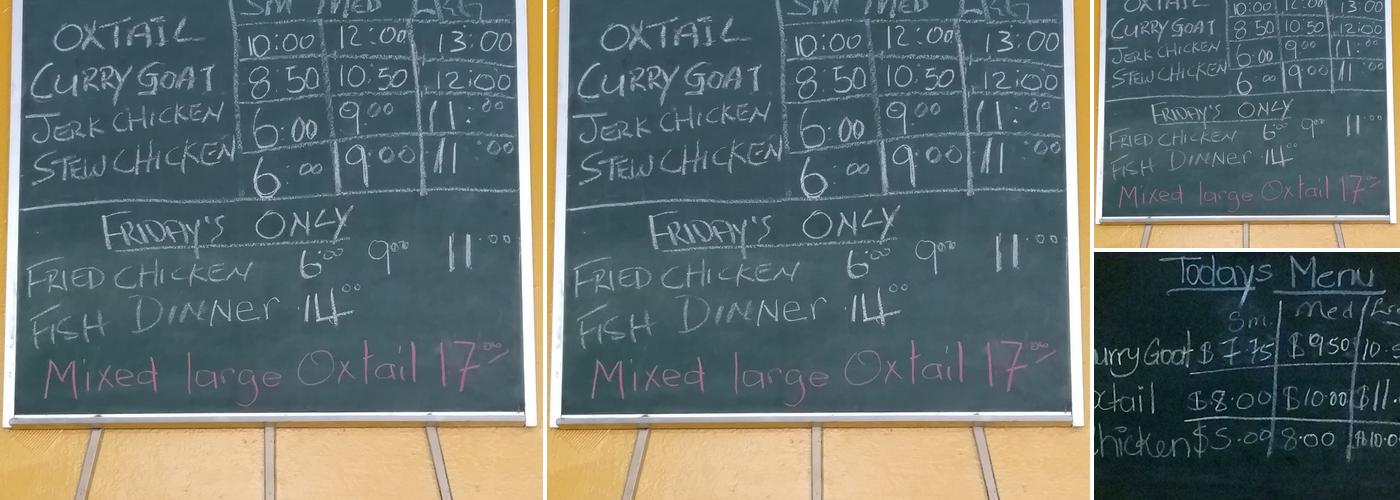 SM MED LRG
OXTAIL 10:00 12:00 13:00
CURRY GOAT 8:50 10:50 12:00
JERK CHICKEN 6:00 9:00 11:00
STEW CHICKEN 6:00 9:00 11:00
FRIDAY'S ONLY
FRIED CHICKEN 6:00 9:00 11:00
FISH DINNER 14:00
Mixed large Oxtail 17:00
SM MED LRG
OXTAIL 10:00 12:00 13:00
CURRY GOAT 8:50 10:50 12:00
JERK CHICKEN 6:00 9:00 11:00
STEW CHICKEN 6:00 9:00 11:00
FRIDAY'S ONLY
FRIED CHICKEN 6:00 9:00 11:00
FISH DINNER 14:00
Mixed large Oxtail 17:00
OXTAIL 10:00 12:00 13:00
CURRY GOAT 8:50 10:50 12:00
JERK CHICKEN 6:00 9:00 11:00
STEW CHICKEN 6:00 9:00 11:00
FRIDAY'S ONLY
FRIED CHICKEN 6:00 9:00 11:00
FISH DINNER 14:00
Mixed large Oxtail 17:00
Todays Menu
Sm. Med
urry Goat $7.75 $9.50 10.5
xtail $8.00 $10.00 $11.
hicken $5.00 8.00 $10.0